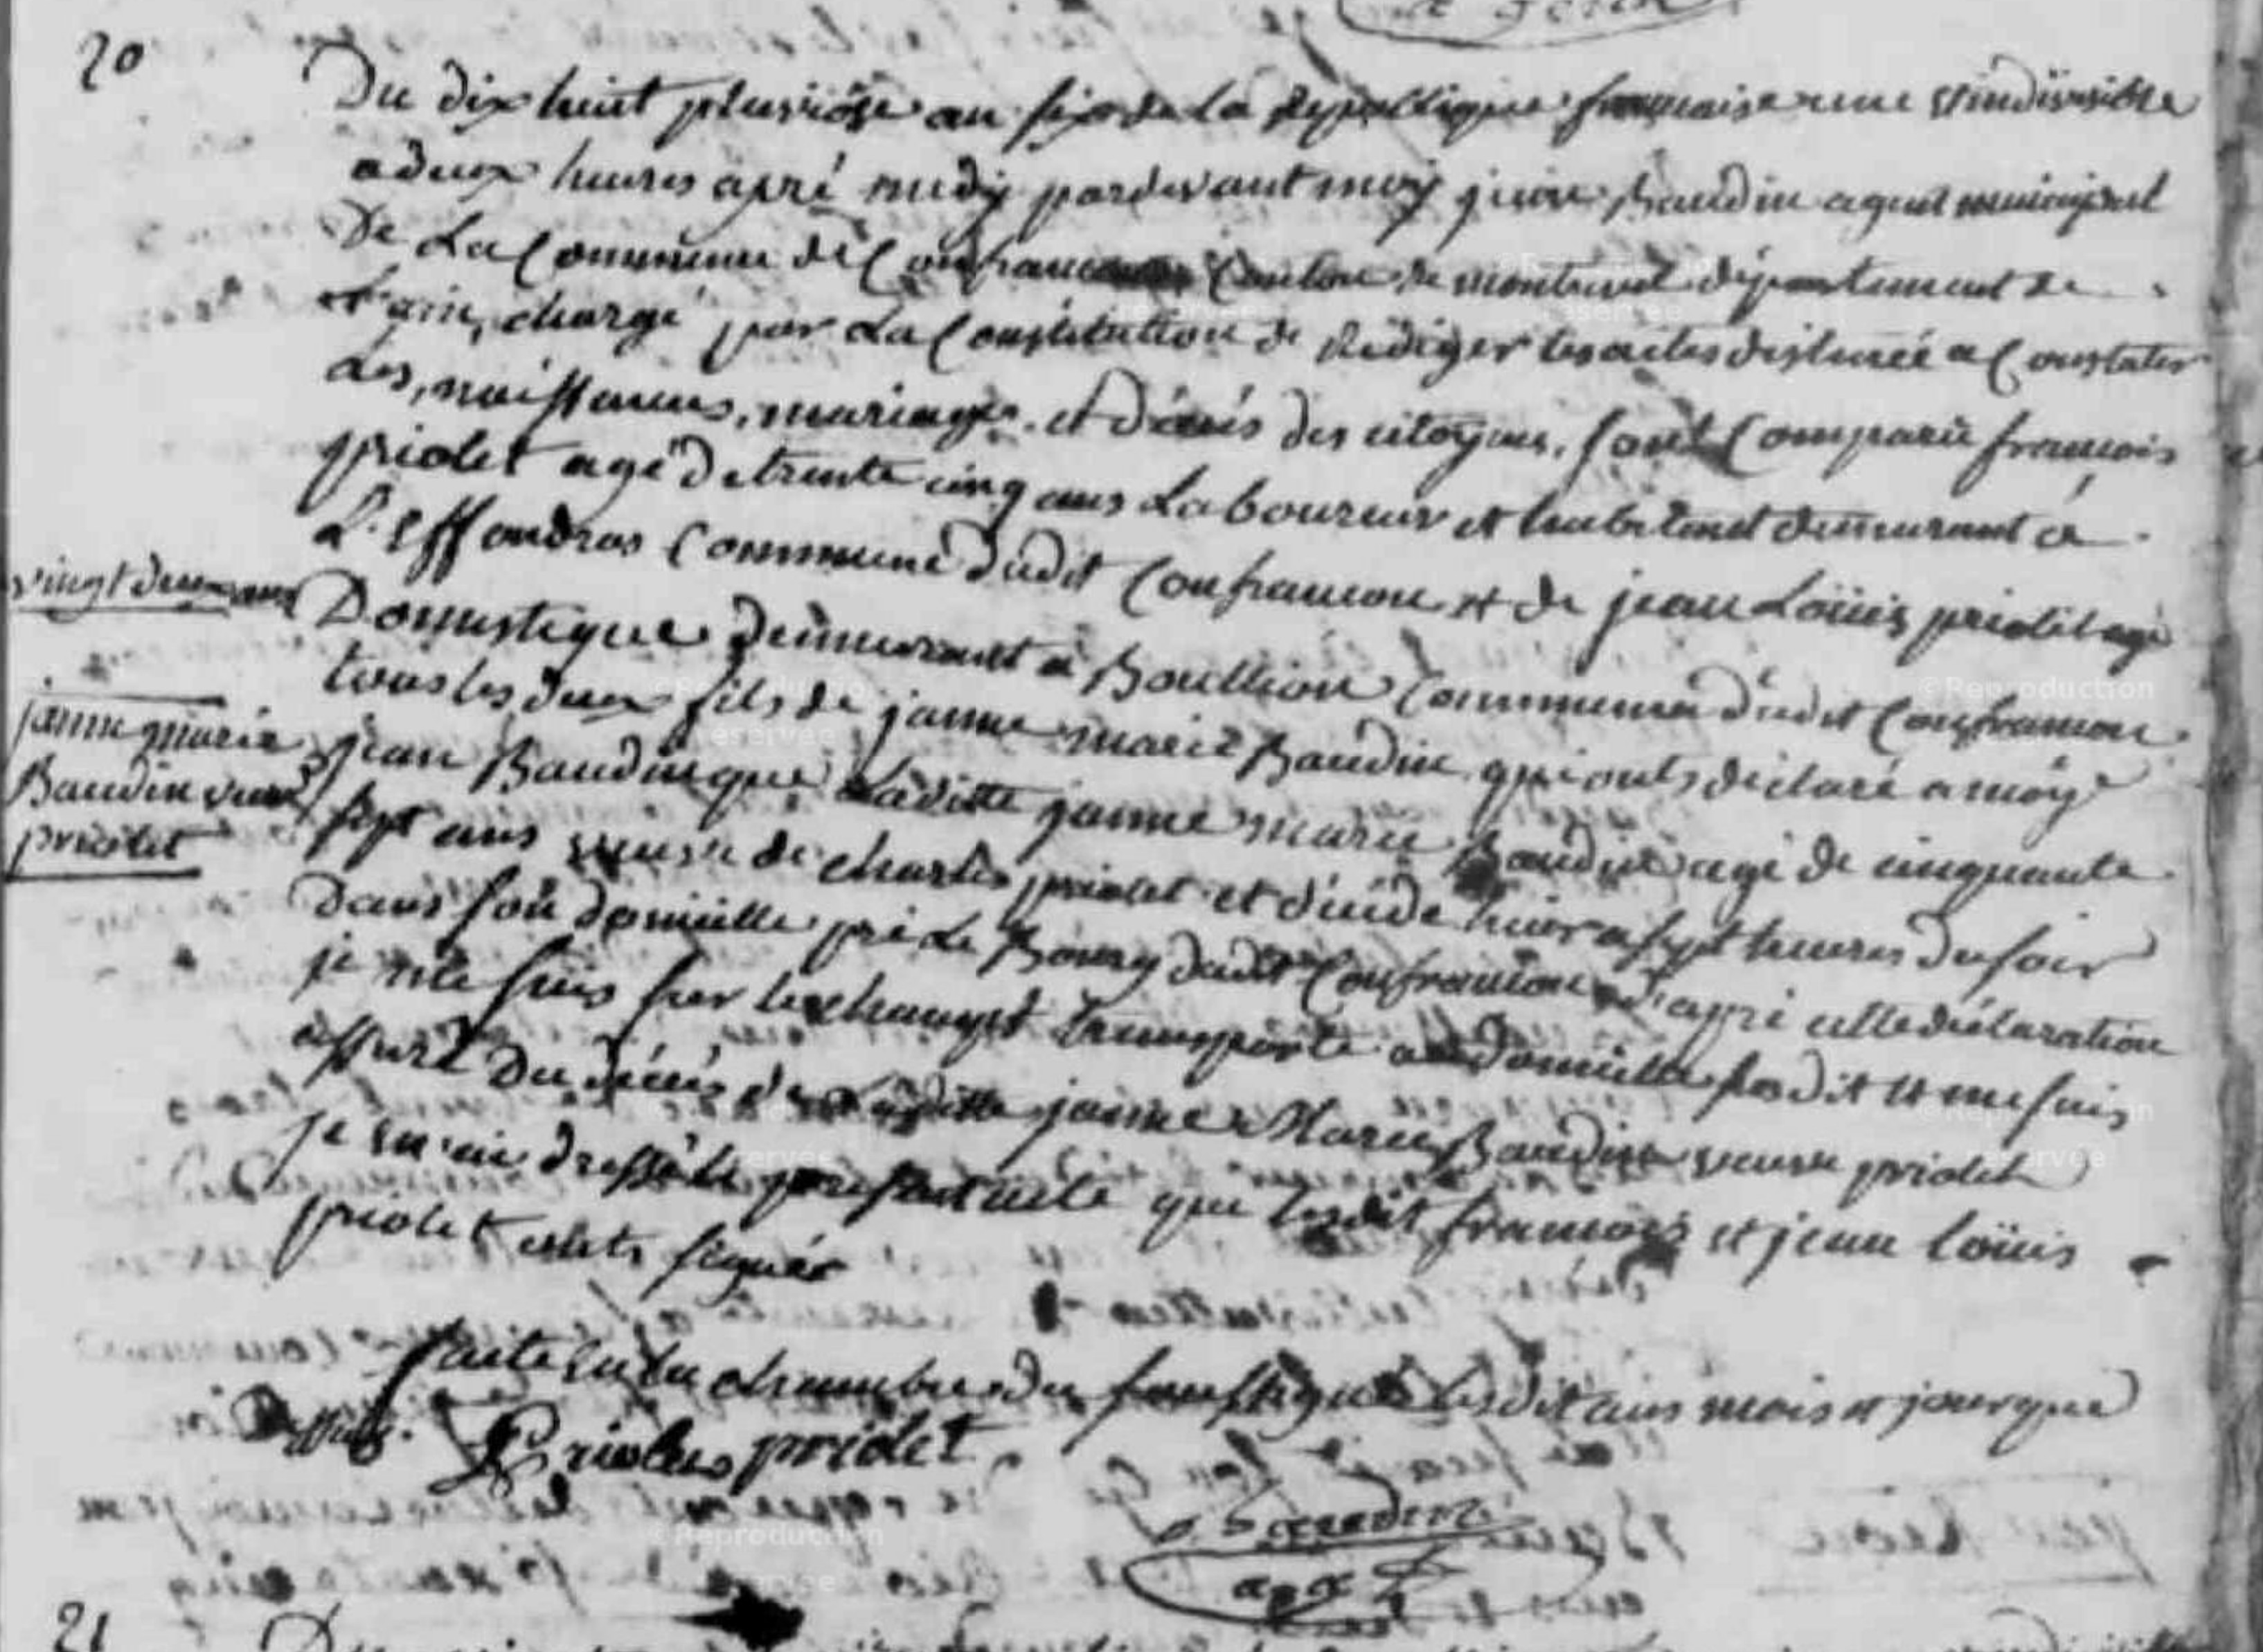 20
Du dix huit pluviôse an six de la Republique francaise une et indivisible
a deux heures apré midy pardevant moy Baudin agent municipal
De La Commune de Confrancon Canton de montrevel département de
L'ain, chargé par La Constitution de Rédiger les actes destinée a Constater
Les, naissances, mariages, et décés des citoyens, sont Comparu francois
priolet agé de trente cinq ans Laboureur et habitant demeurant a
L'Effondras Commune dudit Confrancon et de jean Loüis priolet agé
vingt deux ans
Domestique demeurant a Boullion Commune dudit Confrancon
tous les deux fils de janne marie Baudin qui onts déclaré a moy
janne marie
Baudin veuve
priolet
jean Baudin que Laditte janne marie Baudin agé de cinquante
sept ans veuve de charles priolet et décédé hier a sept heures du soir
Dans son domicille pré Le Bourg dudit Confrancon d'apré cette déclaration
je me suis sur le champt transporté au domicille susdit et me suis
assuré du décés de Laditte janne Marie Baudin veuve priolet
je en ai dressé le present acte que lesdit francois et jean loüis
priolet onts signés
faite en la chambre du lesdit ans mois et jour que
Dessus. priolet
Baudin
agt
21